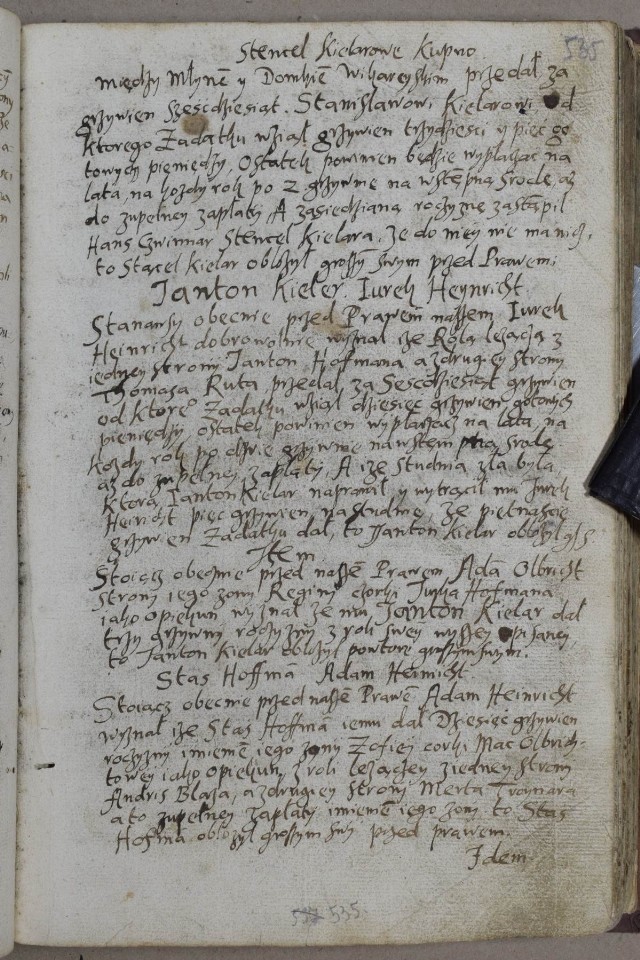 535
Stencel Kielarowe Kupno
między Młynē y Domkiē Wilhareyskim przedał za
grzywien Szescdziesiąt. Stanisławowi Kielarowi od
ktorego Zadatku wział grzywien trzydziesci y pięc go
towych pieniędzy, Ostatek powinien będzie wypłaczac na
lata, na kozdy rok po 2 grzywne na wstępną Srode, aż
do zupełney zapłaty, A zasiedziana rocżyznę zastąpił
Hans Stencel Kielara, ze do niey nie ma nicz,
to Stącel Kielar obłozył groszē swym przed Prawem.
Janton Kieler. Jurek Heynricht
Stanawsy obecnie przed Prawem nassem Jurek
Heinricht dobrowolnie wyznał ize Rola lezacą z
iedney strony Janton Hoffmana a z drugiey strony
Thomasa Ruta przedał, za Sescdziesiąt grzywien
od ktore° Zadatku wział dziesięc grzywien gotowych
pieniędzy, ostatek powinien wypłaczacz na lata, na
kozdy rok po dwie grzywnie na wstempną Srode
aż do zupełney zapłaty, A ize studnia zła była,
ktorą Janton Kielar naprawił, y wytracił mu Jurek
Heinricht pięc grzywien, na studnię, ze piętnascie
grzywien Zadatku dał, to Janton Kielar obłozył gls
Item
Stoiącz obecnie przed nassē Prawem Adā Olbricht
strony iego zony Reginy corki Hofmana
iako Opiekun wyznał ze mu Janton Kielar dał
trzy grzywny rocżyzny z roli swey wyszey opisaney,
to Janton Kielar obłozył powtore groszem swym.
Stas Hoffmā Adam Heinricht
Stoiącz obecnie przed nassē Prawē Adam Heinricht
wyznał ize Stas Hoffmā iemu dał Dziesięc grzywien
rocżyzny imienē iego zony Zofiey corki Mac Olbrich-
towey iako Opiekun, z roli lezączey z iedney strony
Andris Blaza, a z drugiey strony Merta
a to zupełney zapłaty imienē iego zony to Stas
Hofmā obłozył groszym swy przed prawem.
Idem
535